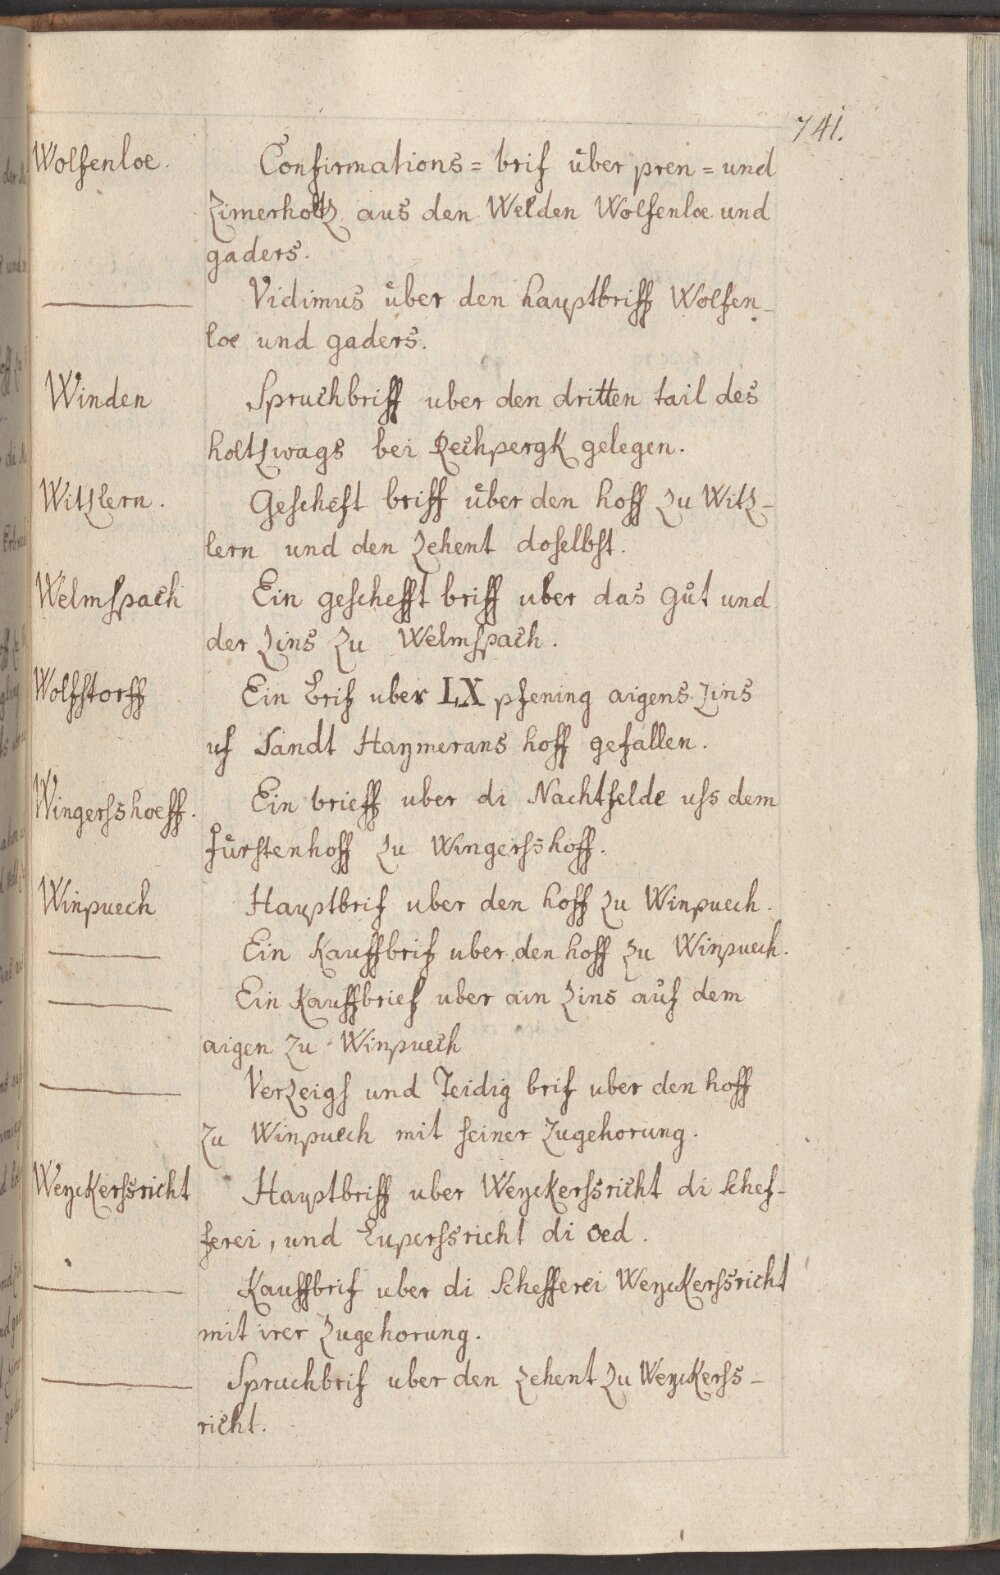 741.
Wolfenloe. Confirmations = brif über pren = und
Zimerholtz aus den Welden Wolfenloe und
gaders.
Vidimus über den hauptbriff Wolfen-
loe und gaders.
Winden Spruchbriff uber den dritten tail des
holtzwags bei Rechpergk gelegen.
Witzlern. Gescheft briff über den hoff zu Witz-
lern und den Zehent doselbst.
Welmspach Ein geschefft briff uber das gůt und
der Zins zu Welmspach.
Wolfstorff Ein brif uber LX pfening aigens Zins
uf Sandt Haymerans hoff gefallen.
Wingershoeff. Ein brieff uber di Nachtselde uss dem
fürstenhoff zu Wingershoff.
Winpuech Hauptbrif uber den hoff zu Winpuech.
Ein Kauffbrif uber den hoff zu Winpuech.
Ein Kauffbrief uber ain Zins aůf dem
aigen zu Winpuech
Verzeigs und Teidig brif uber den hoff
zu Winpuech mit seiner Zugehorung.
Weyckersricht Hauptbriff uber Weyckersricht di Schef-
ferei, und Lupersricht di oed.
Kauffbrif uber di Schefferei Weyckersricht
mit irer Zugehorung.
Spruchbrif uber den Zehent zu Weyckers-
richt.